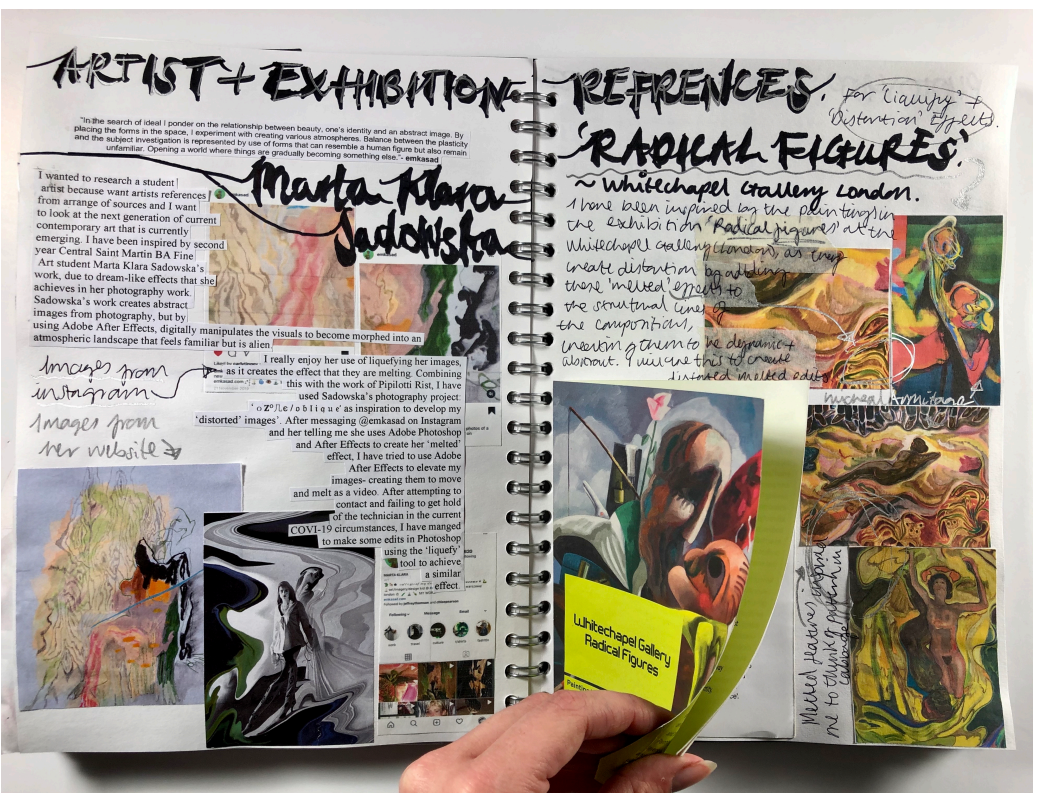 ARTIST + EXHIBITION
"In the search of ideal I ponder on the relationship between beauty, one's identity and an abstract image. By
placing the forms in the space, I experiment with creating various atmospheres. Balance between the plasticity
and the subject investigation is represented by use of forms that can resemble a human figure but also remain
unfamiliar. Opening a world where things are gradually becoming something else."- emkasad
Marta Klara
Sadowska
I wanted to research a student
artist because want artists references
from arrange of sources and I want
to look at the next generation of current
contemporary art that is currently
emerging. I have been inspired by second
year Central Saint Martin BA Fine
Art student Marta Klara Sadowska's
work, due to dream-like effects that she
achieves in her photography work.
Sadowska's work creates abstract
images from photography, but by
using Adobe After Effects, digitally manipulates the visuals to become morphed into an
atmospheric landscape that feels familiar but is alien.
Images from
instagram
Images from
her website
I really enjoy her use of liquefying her images,
as it creates the effect that they are melting. Combining
this with the work of Pipilotti Rist, I have
used Sadowska's photography project:
as inspiration to develop my
'distorted images'. After messaging @emkasad on Instagram
and her telling me she uses Adobe Photoshop
and After Effects to create her 'melted'
effect, I have tried to use Adobe
After Effects to elevate my
images- creating them to move
and melt as a video. After attempting to
contact and failing to get hold
of the technician in the current
COVI-19 circumstances, I have manged
to make some edits in Photoshop
using the 'liquefy'
tool to achieve
a similar
effect.
REFRENCES.
for 'Liquify' +
'Distortion' Effects.
'RADICAL FIGURES'.
~ Whitechapel Gallery London.
I have been inspired by the paintings in
the exhibition 'Radical figures' at the
Whitechapel Gallery London, as they
create distortion by adding
these 'melted' effects to
the structural lines of
the compositions,
creating them to be dynamic +
abstract. I will use this to create
distorted melted edits
Armitage
Whitechapel Gallery
Radical Figures